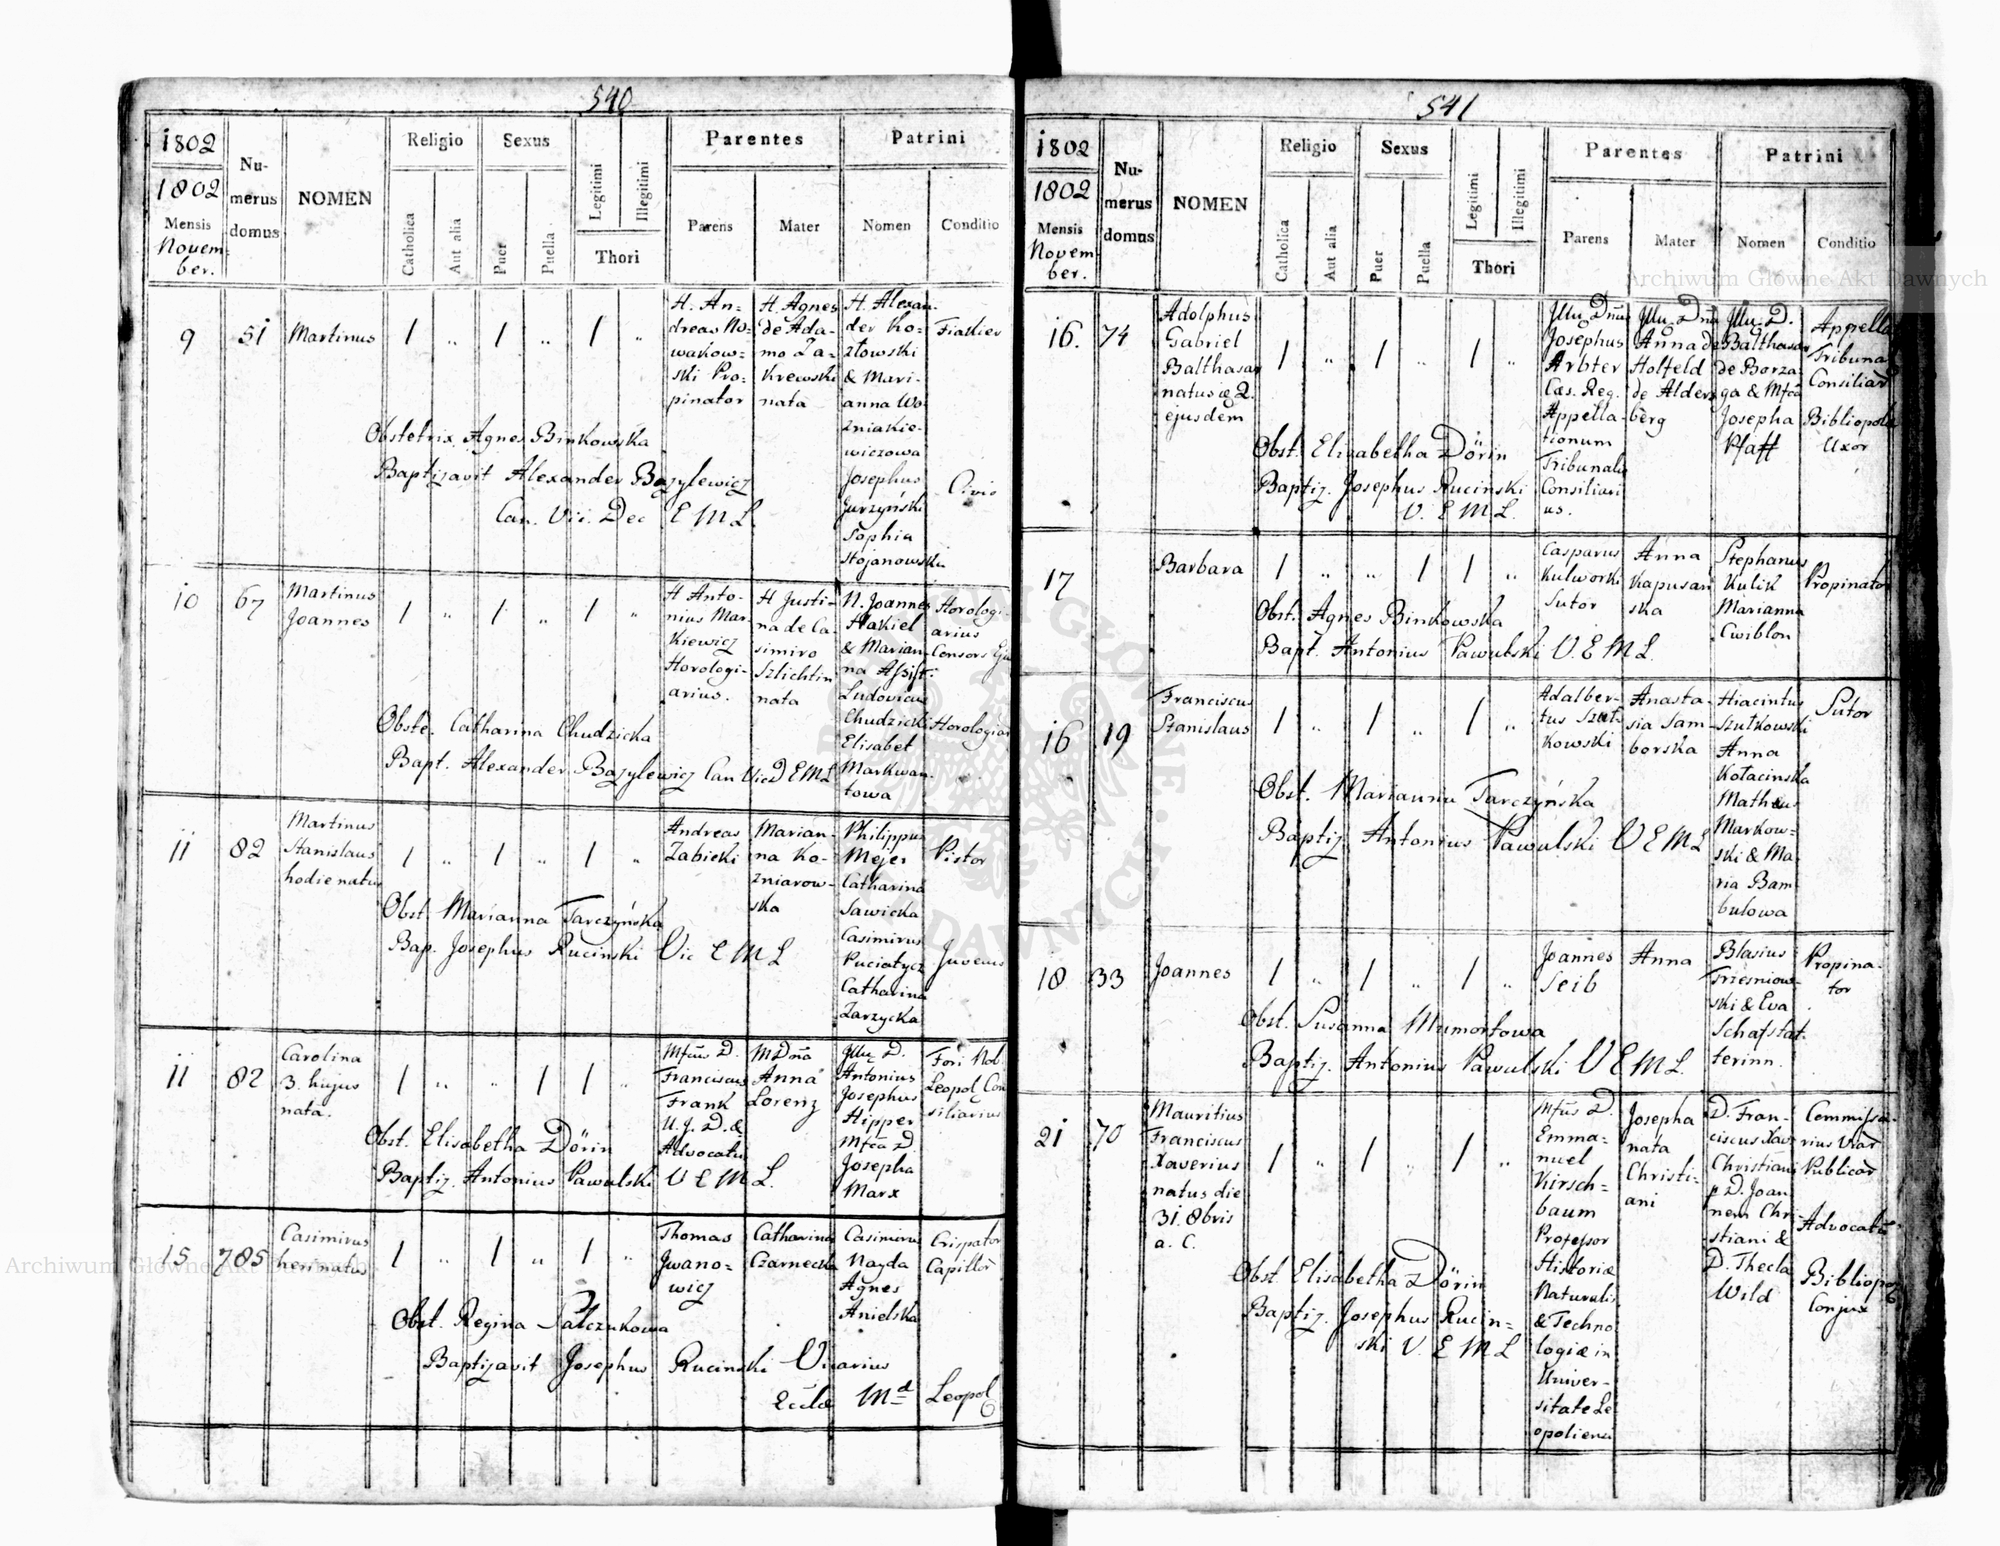 540
1802
1802
Mensis
Novem-
ber.
Nu-
merus
domus
NOMEN
Religio
Catholica
Aut alia
Sexus
Puer
Puella
Legitimi
Illegitimi
Thori
Parentes
Parens
Mater
Patrini
Nomen
Conditio
9
51
Martinus
1 " 1 " 1 "
H. An-
dreas No-
wakow-
ski Pro-
pinator
H. Agnes
de Ada-
mo Za-
krewski
nata
H. Alexan-
der Ko-
złowski
& Mari-
anna Wo
zniakie-
wiczowa
Josephus
Jurzyński
Sophia
Stojanowski
Fiakier
Civis
Obstetrix Agnes Binkowska
Baptizavit Alexander Bazylewicz
Can. Vic. Dec E M L
10
67
Martinus
Joannes
1 " 1 " 1 "
H Anto-
nius Mar
kiewicz
Horologi-
arius.
H Justi-
na de Ca-
simiro
Szlichtin
nata
N. Joannes
Hakiel
& Marian-
na Assist.
Ludovicus
Chudzicki
Elisabet
Markwar-
towa
Horologi-
arius
Consors Ejus
Horologiar
Obste. Catharina Chudzicka
Bapt. Alexander Bazylewicz Can Vic D E M L
11
82
Martinus
Stanislaus
hodie natus
1 " 1 " 1 "
Andreas
Zabicki
Marian-
na Ko-
zniarow-
ska
Philippus
Mejer
Catharina
Sawicka
Casimirus
Puciatycz
Catharina
Zarzycka
Pistor
Juvenis
Obst. Marianna Tarczyńska
Bap. Josephus Rucinski Vic E M L
11
82
Carolina
3. hujus
nata.
1 " " 1 1 "
Mfcus D.
Franciscus
Frank
U. J. D. &
Advocatus
M Dna
Anna
Lorenz
Illu D.
Antonius
Josephus
Hipper
Mfca D.
Josepha
Marx
Fori Nob
Leopol Con
siliarius
Obst. Elisabetha Dörin
Baptiz. Antonius Pawulski V E M L.
15
785
Casimirus
heri natus
1 " 1 " 1 "
Thomas
Jwano-
wicz
Catharina
Czarnecka
Casimirus
Nayda
Agnes
Anielska
Crispator
Capillor
Obst. Regina Salczukowa
Baptizavit Josephus Rucinski Vicarius
Eccla Md Leopol
541
1802
1802
Mensis
Novem-
ber.
Nu-
merus
domus
NOMEN
Religio
Catholica
Aut alia
Sexus
Puer
Puella
Legitimi
Illegitimi
Thori
Parentes
Parens
Mater
Patrini
Nomen
Conditio
16.
74
Adolphus
Gabriel
Balthasar
natus 2.
ejusdem
1 " 1 " 1 "
Illu. Dnus
Josephus
Arbter
Cæs. Reg.
Appella-
tionum
Tribunalis
Consiliari
us.
Illu. Dna
Anna de
Holfeld
de Alders
berg
Illu. D.
Balthasar
de Borza
ga & Mfca
Josepha
Pfaff
Appella
Tribuna
Consiliar
Bibliopola
Uxor
Obst. Elisabetha Dörin
Baptiz. Josephus Rucinski
V. E M L.
17
Barbara
1 " " 1 1 "
Casparus
Kulworki
Sutor
Anna
Kapusan
ska
Stephanus
Kulik
Marianna
Cwiblon
Propinator
Obst. Agnes Binkowska
Bapt. Antonius Pawulski V. E M L.
16
19
Franciscus
Stanislaus
1 " 1 " 1 "
Adalber-
tus Szut-
kowski
Anasta-
sia Sam-
borska
Hiacintus
Szutkowski
Anna
Kotacinska
Matheus
Markow-
ski & Ma
ria Bam
bulowa
Sutor
Obst. Marianna Tarczyńska
Baptiz Antonius Pawulski V E M L
18
33
Joannes
1 " 1 " 1 "
Joannes
Seib
Anna
Blasius
Triesniow-
ski & Eva
Schafstat
terinn.
Propina-
tor
Obst. Susanna Mumortowa
Baptiz. Antonius Pawulski V E M L.
21
70
Mauritius
Franciscus
Xaverius
natus die
31. 8bris
a. C.
1 " 1 " 1 "
Mfcus D.
Emma-
nuel
Kirsch-
baum
Professor
Historiæ
Naturalis
& Techno
logiæ in
Univer-
sitate Le
opoliensi
Josepha
nata
Christi-
ani
D. Fran-
ciscus Xav
Christiani
p D. Joan
nem Chri
stiani &
D. Thecla
Wild
Commissa-
rius Viar
Publicar
Advocatus
Bibliopoz
Conjux
Obst. Elisabetha Dörin
Baptiz. Josephus Rucin-
ski V. E M L
Archiwum Główne Akt Dawnych
Archiwum Główne Akt Dawnych